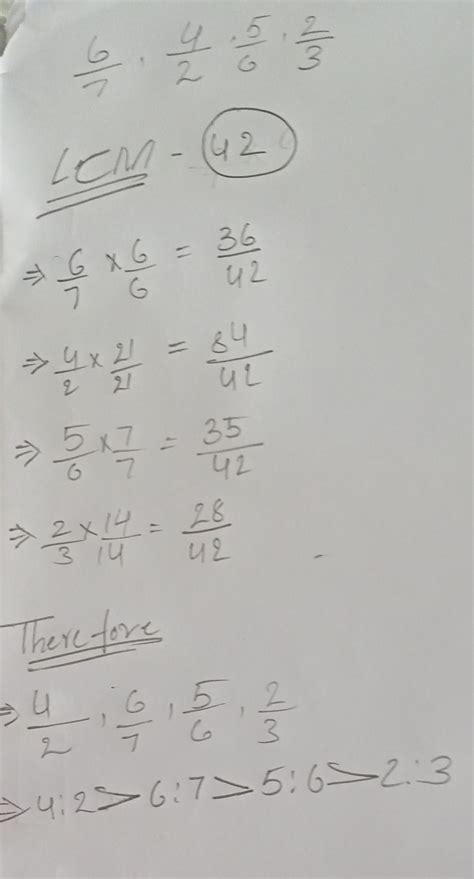 6/7 , 4/2 , 5/6 , 2/3
LCM - 42
⇒ 6/7 × 6/6 = 36/42
⇒ 4/2 × 21/21 = 84/42
⇒ 5/6 × 7/7 = 35/42
⇒ 2/3 × 14/14 = 28/42
Therefore
⇒ 4/2 , 6/7 , 5/6 , 2/3
⇒ 4:2 > 6:7 > 5:6 > 2:3